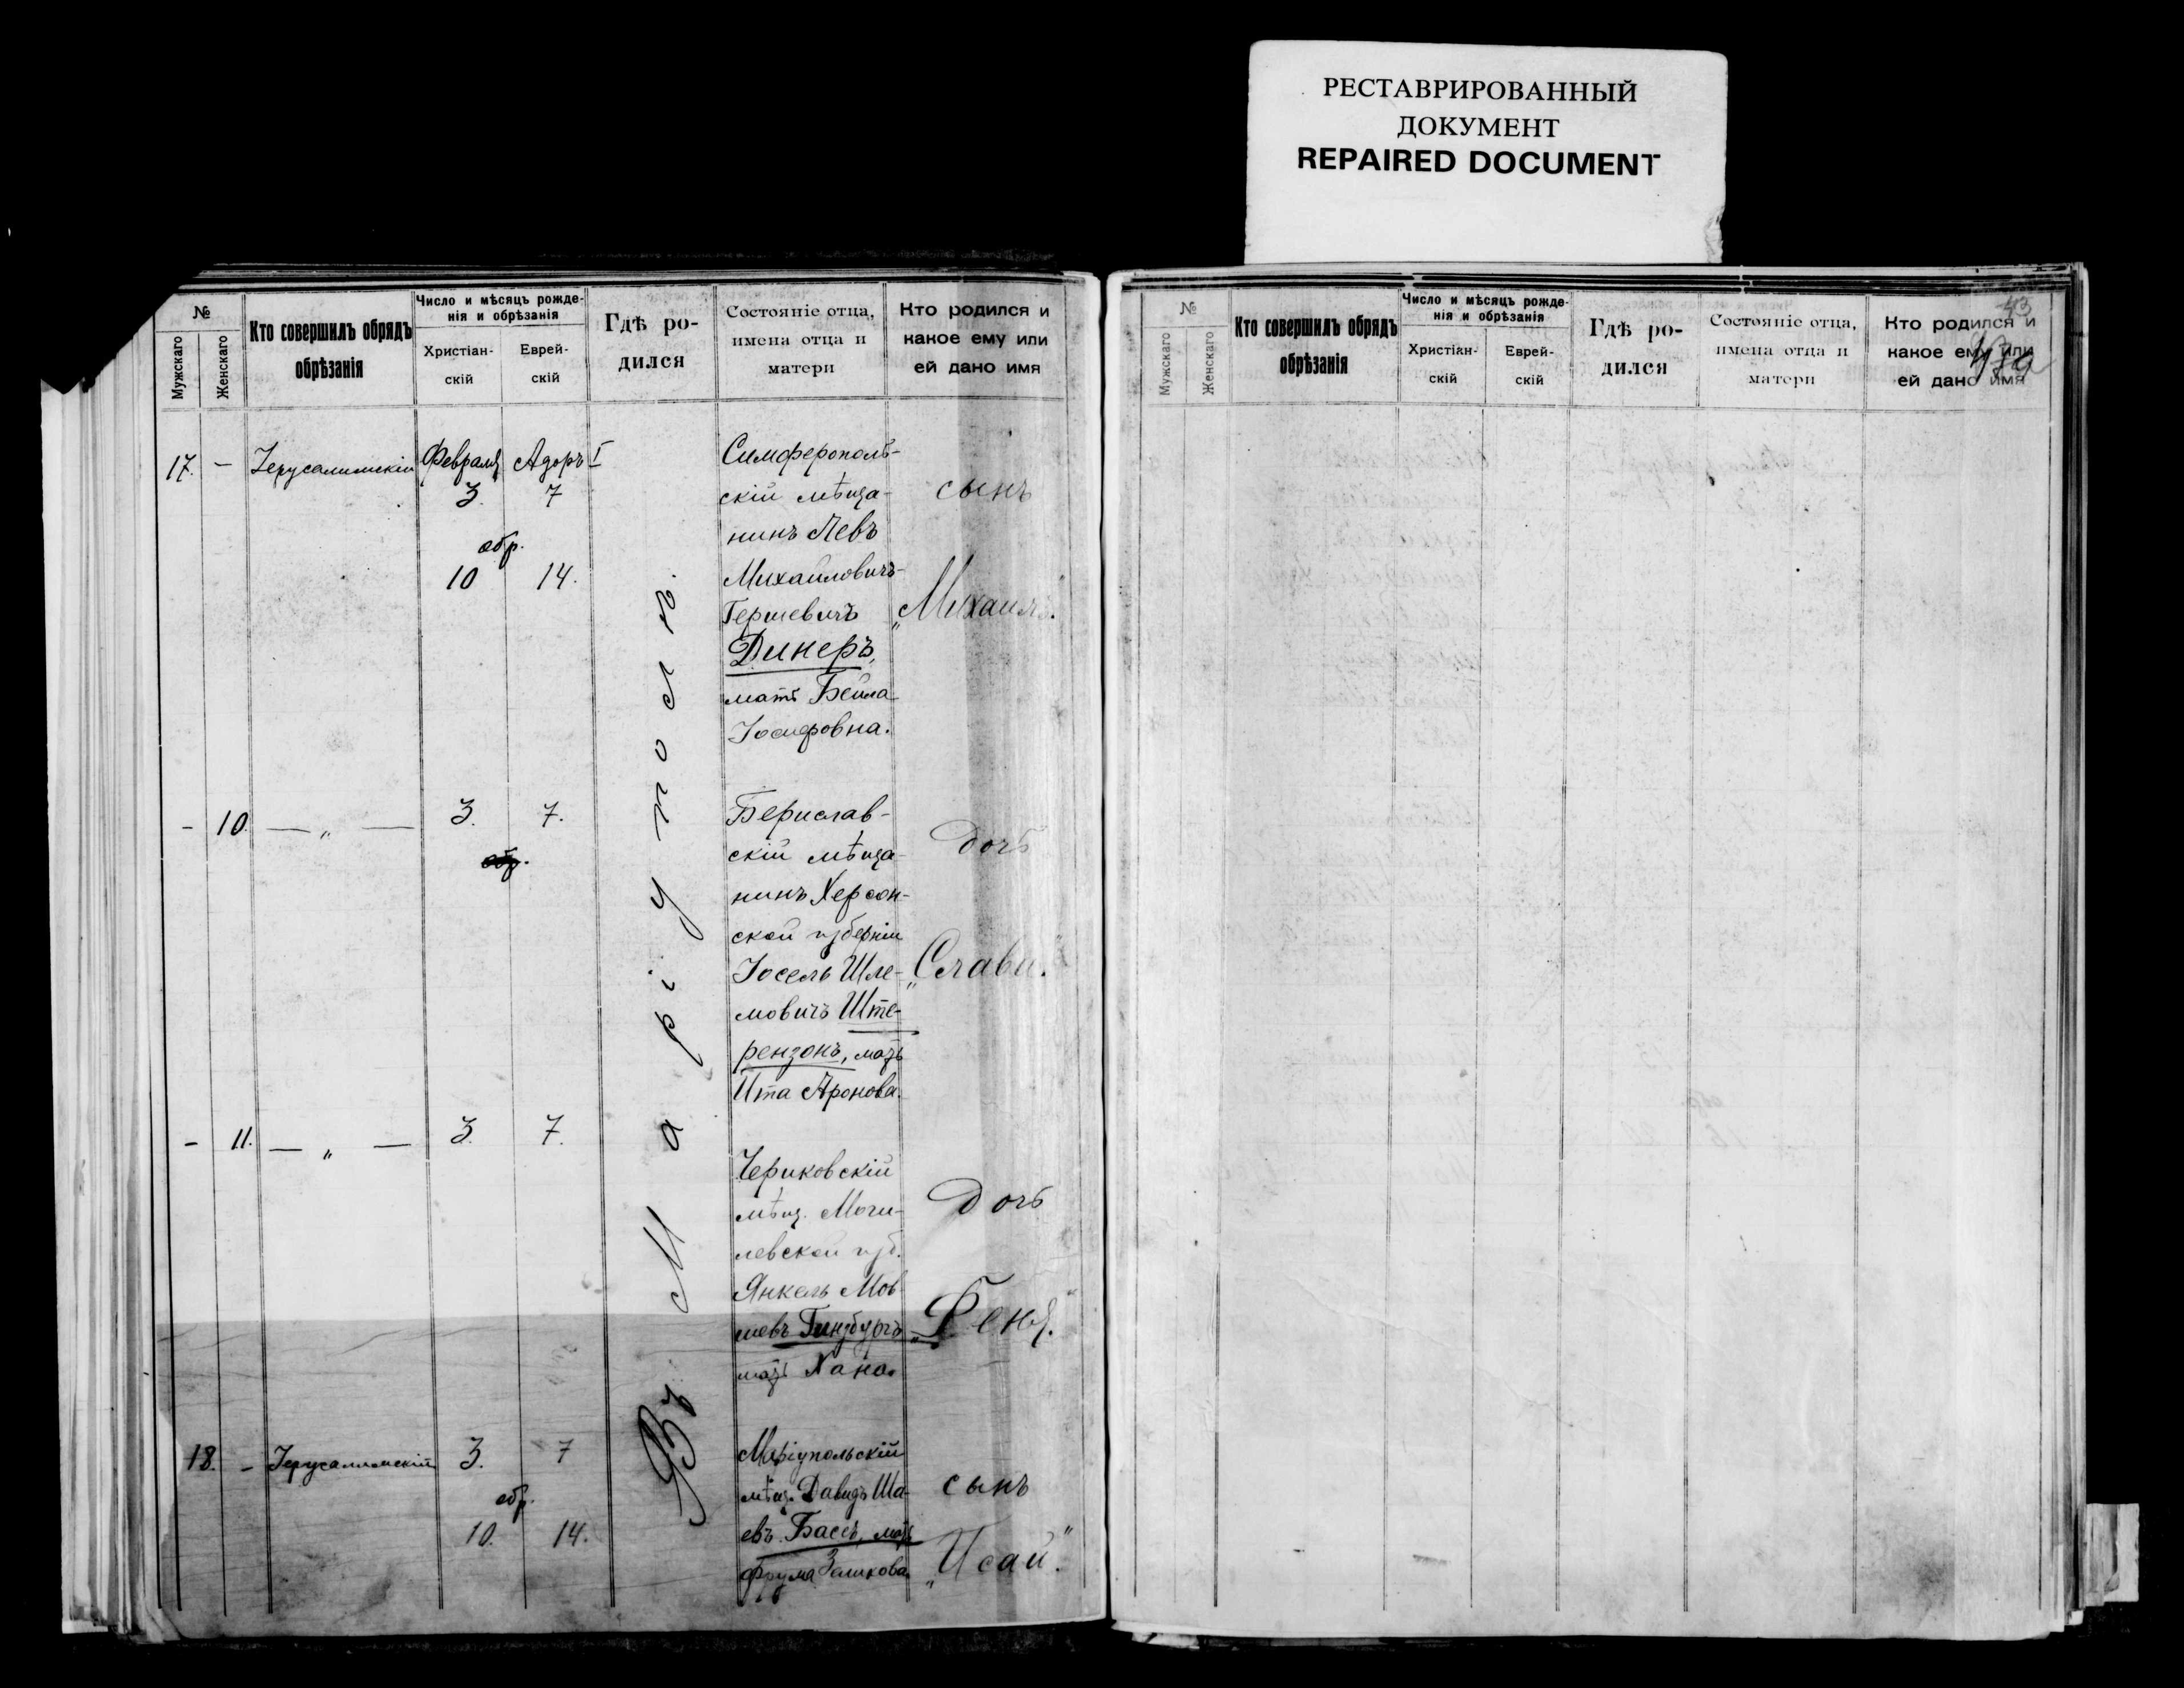 РЕСТАВРИРОВАННЫЙ
ДОКУМЕНТ
REPAIRED DOCUMENT
№
Мужскаго
Женскаго
Кто совершилъ обрядъ
обрѣзанія
Число и мѣсяцъ рожде-
нія и обрѣзанія
Христіан-
скій
Еврей-
скій
Гдѣ ро-
дился
Состояніе отца,
имена отца и
матери
Кто родился и
какое ему или
ей дано имя
17. – Іерусалимскій Февраля Адоръ I
3. 7
обр.
10 14.
Симферополь-
скій мѣща-
нинъ Левъ
Михайловичъ-
Гершевичъ
Динеръ,
мать Бейла
Іосифовна.
сынъ
„Михаилъ.“
Въ Маріуполѣ.
– 10. — „ — 3. 7.
обр.
Берислав-
скій мѣща-
нинъ Херсон-
ской губерніи
Іосель Шле-
мовичъ Ште-
рензонъ, мать
Ита Аронова.
дочь
„Слави.“
– 11. — „ — 3. 7.
Чериковскій
мѣщ. Моги-
левской губ.
Янкель Мов
шевъ Гинзбургъ
мать Хана.
дочь
„Феня.“
18. – Іерусалимскій 3. 7
обр.
10. 14.
Маріупольскій
мѣщ. Давидъ Ша-
евъ Бассъ, мать
Фрума Зеликова.
сынъ
„Исай.“
№
Мужскаго
Женскаго
Кто совершилъ обрядъ
обрѣзанія
Число и мѣсяцъ рожде-
нія и обрѣзанія
Христіан-
скій
Еврей-
скій
Гдѣ ро-
дился
Состояніе отца,
имена отца и
матери
Кто родился и
какое ему или
ей дано имя
43